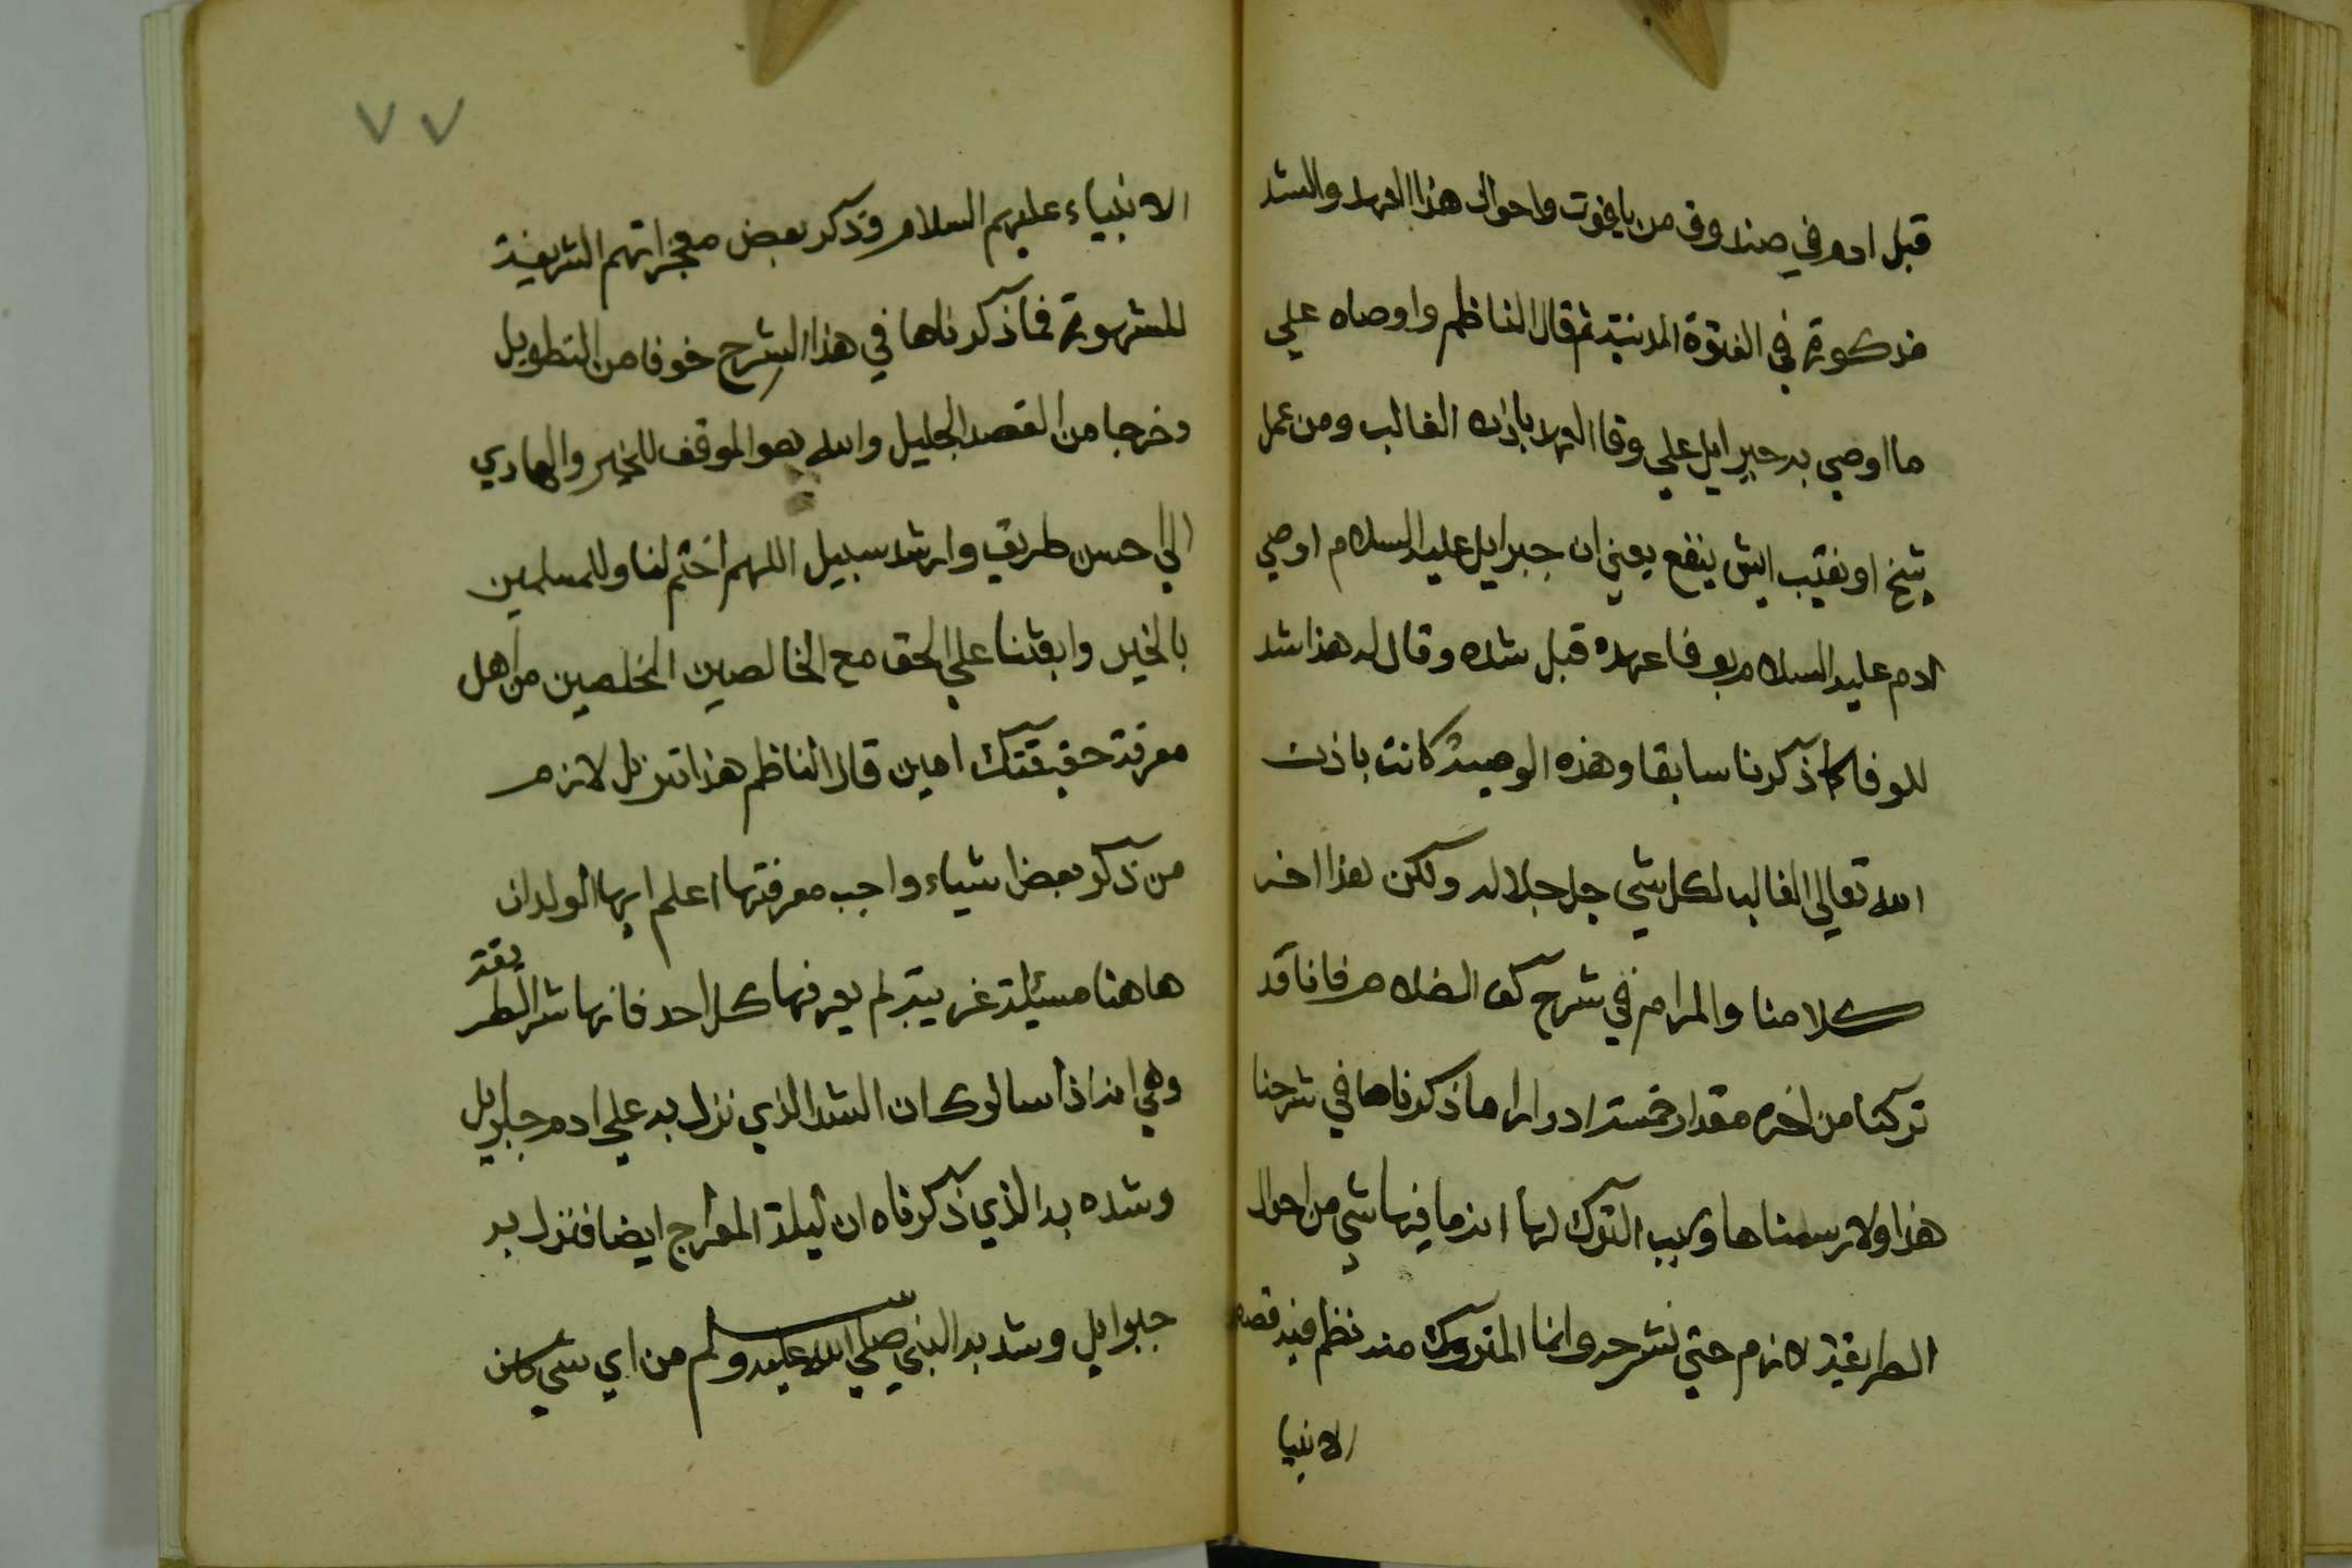 قبل ادم في صندوق من ياقوت واحوال هذا العهد والشد
مذكورة في الفتوة المدنية ثم قال الناظم واوصاه علي
ما اوصي به جبرايل علي وفا العهد باذن الغالب ومن عمل
شيخ او نقيب ايش ينفع يعني ان جبرايل عليه السلام اوصي
ادم عليه السلام بوفا عهده قبل شده وقال له هذا شد
للوفا كما ذكرنا سابقا وهذه الوصية كانت باذن
الله تعالي الغالب لكل شي جل جلاله وليكن هذا اخر
كلامنا والمرام في شرح كف الضلام فاننا قد
تركنا من اخره مقدار خمسة ادوار ما ذكرناها في شرحنا
هذا ولا رسمناها وسبب الترك لها انه ما فيها شي من احوال
الطريقة لازم حتي نشرحه وانما المتروك منه نظم فيه قصه
الانبيا
٧٧
الانبياء عليهم السلام وذكر بعض معجزاتهم الشريفة
المشهورة فما ذكرناها في هذا الشرح خوفا من التطويل
وخرجا من القصد الجليل والله هو الموفق للخير والهادي
الي احسن طريق وارشد سبيل اللهم اختم لنا وللمسلمين
بالخير وابعثنا علي الحق مع الخالصين المخلصين من اهل
معرفة حقيقتك امين قال الناظم هذا تنزيل لازم
من ذكر بعض اشياء واجب معرفتها اعلم ايها الولد ان
هاهنا مسئلة غريبة لم يعرفها كل احد فانها شر الطريقة
وهي انه اذا سالوك ان الشد الذي نزل به علي ادم جبرايل
وشده به الذي ذكرناه ان ليلة المعراج ايضا فنزل به
جبرايل وشد به النبي صلي الله عليه وسلم من اي شي كان